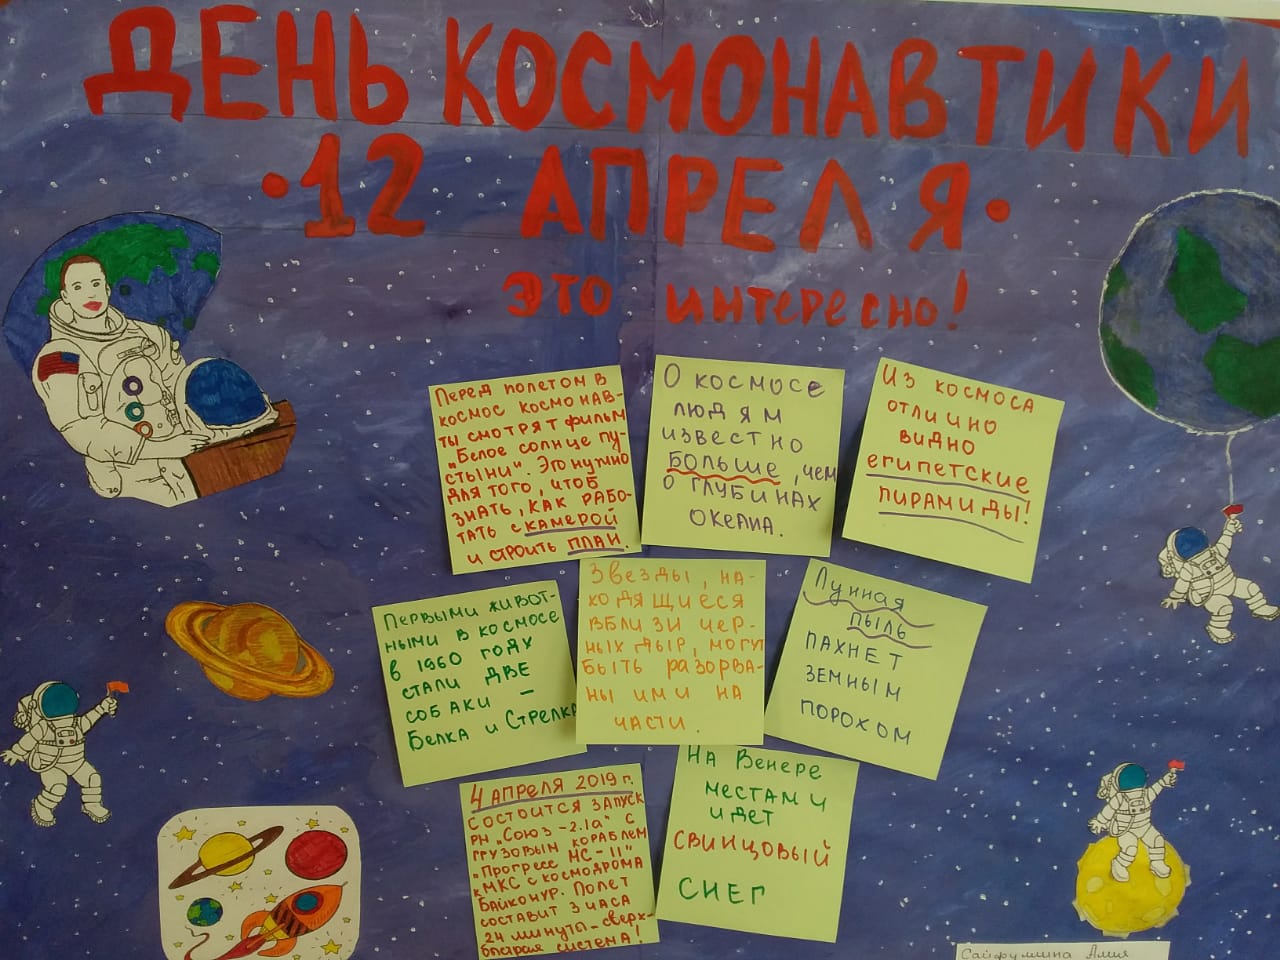 ДЕНЬ КОСМОНАВТИКИ
·12 АПРЕЛЯ·
ЭТО ИНТЕРЕСНО!
Перед полетом в
космос космонав-
ты смотрят фильм
„Белое солнце пу-
стыни". Это нужно
для того, чтоб
знать, как рабо-
тать с камерой
и строить план.
О космосе
людям
известно
больше, чем
о глубинах
океана.
Из космоса
отлично
видно
египетские
пирамиды!
Первыми живот-
ными в космосе
в 1960 году
стали две
собаки –
Белка и Стрелка
Звезды, на-
ходящиеся
вблизи чер-
ных дыр, могут
быть разорва-
ны ими на
части.
Лунная
пыль
пахнет
земным
порохом
4 апреля 2019 г.
состоится запуск
РН „Союз-2.1а" с
грузовым кораблем
„Прогресс МС-11"
к МКС с космодрома
Байконур. Полет
составит 3 часа
24 минуты-сверх-
быстрая система!
На Венере
местами
идет
свинцовый
снег
Амия